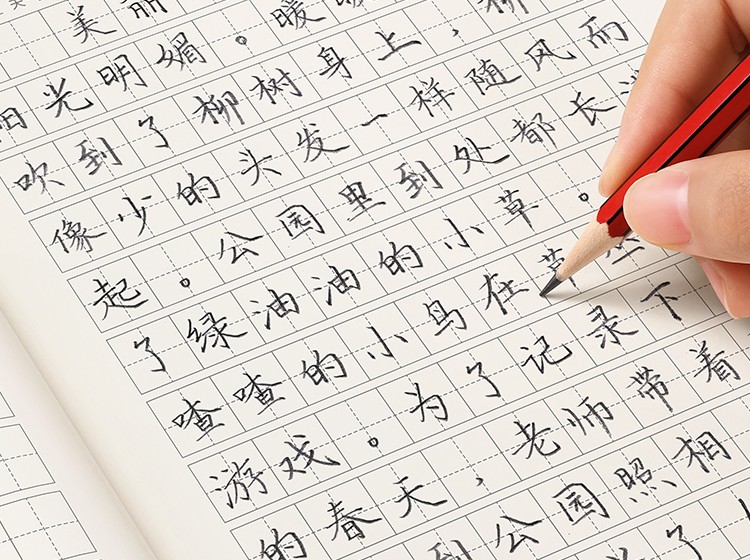 美丽
阳光明媚。暖
吹到了柳树身上，柳
像少的头发一样随风而
起。公园里到处都长
了绿油油的小草。
喳喳的小鸟在草
游戏。为了记录下
的春天，老师带着
到公园照相
了